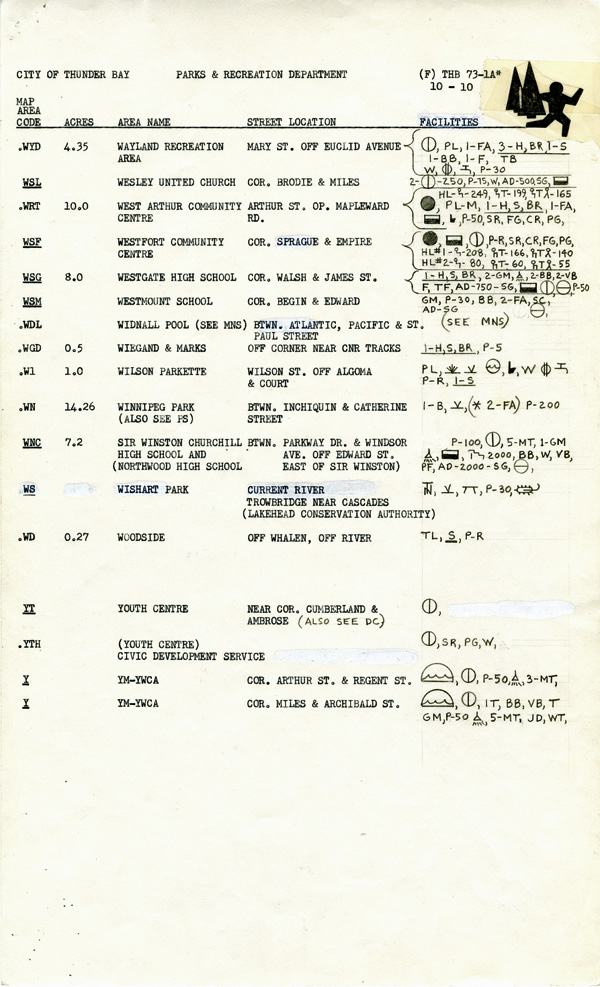 CITY OF THUNDER BAY PARKS & RECREATION DEPARTMENT (F) THB 73-1A*
10 - 10
MAP
AREA
CODE ACRES AREA NAME STREET LOCATION FACILITIES
.WYD 4.35 WAYLAND RECREATION MARY ST. OFF EUCLID AVENUE , PL, 1-FA, 3-H, BR, 1-S
AREA 1-BB, 1-F, TB
W, P-30
WSL WESLEY UNITED CHURCH COR. BRODIE & MILES 2- -250, P-75, W, AD-500, SG,
HL- -249, T-199, TX-165
.WRT 10.0 WEST ARTHUR COMMUNITY ARTHUR ST. OP. MAPLEWARD , PL-M, 1-H, S, BR, 1-FA,
CENTRE RD. P-50, SR, FG, CR, PG,
WSF WESTFORT COMMUNITY COR. SPRAGUE & EMPIRE P-R, SR, CR, FG, PG,
CENTRE HL#1- -208, T-166, TX-140
HL#2- - 80, T-60, TX-55
WSG 8.0 WESTGATE HIGH SCHOOL COR. WALSH & JAMES ST. 1-H, S, BR, 2-GM, 2-BB, 2-VB
F, TF, AD-750-SG, P-50
WSM WESTMOUNT SCHOOL COR. BEGIN & EDWARD GM, P-30, BB, 2-FA, SC,
AD-SG
.WDL WIDNALL POOL (SEE MNS) BTWN. ATLANTIC, PACIFIC & ST. (SEE MNS)
PAUL STREET
.WGD 0.5 WIEGAND & MARKS OFF CORNER NEAR CNR TRACKS 1-H, S, BR, P-5
.W1 1.0 WILSON PARKETTE WILSON ST. OFF ALGOMA PL, W
& COURT P-R, 1-S
.WN 14.26 WINNIPEG PARK BTWN. INCHIQUIN & CATHERINE 1-B, (* 2-FA) P-200
(ALSO SEE PS) STREET
WNC 7.2 SIR WINSTON CHURCHILL BTWN. PARKWAY DR. & WINDSOR P-100, 5-MT, 1-GM
HIGH SCHOOL AND AVE. OFF EDWARD ST. 2000, BB, W, VB,
(NORTHWOOD HIGH SCHOOL EAST OF SIR WINSTON) PF, AD-2000-SG,
WS WISHART PARK CURRENT RIVER P-30,
TROWBRIDGE NEAR CASCADES
(LAKEHEAD CONSERVATION AUTHORITY)
.WD 0.27 WOODSIDE OFF WHALEN, OFF RIVER TL, S, P-R
YT YOUTH CENTRE NEAR COR. CUMBERLAND &
AMBROSE (ALSO SEE DC)
.YTH (YOUTH CENTRE) SR, PG, W,
CIVIC DEVELOPMENT SERVICE
Y YM-YWCA COR. ARTHUR ST. & REGENT ST. P-50, 3-MT,
Y YM-YWCA COR. MILES & ARCHIBALD ST. IT, BB, VB, T
GM, P-50 5-MT, JD, WT,